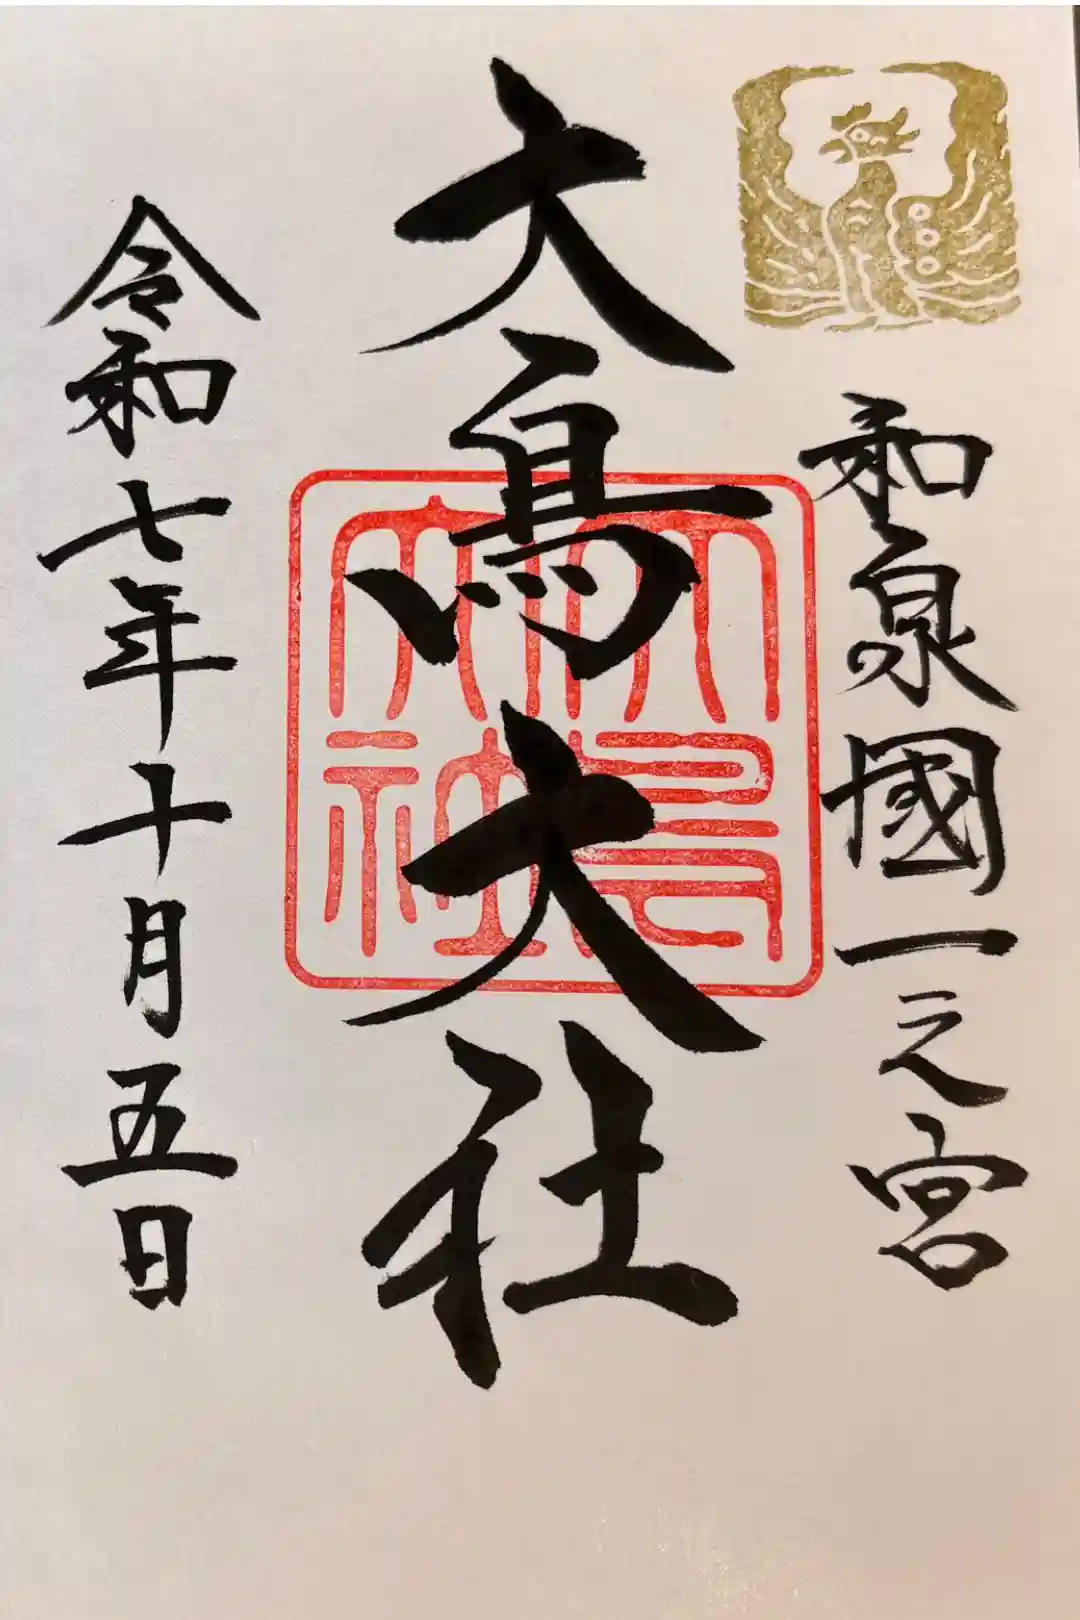 和泉國一之宮
大鳥大社
大鳥大社
令和七年十月五日